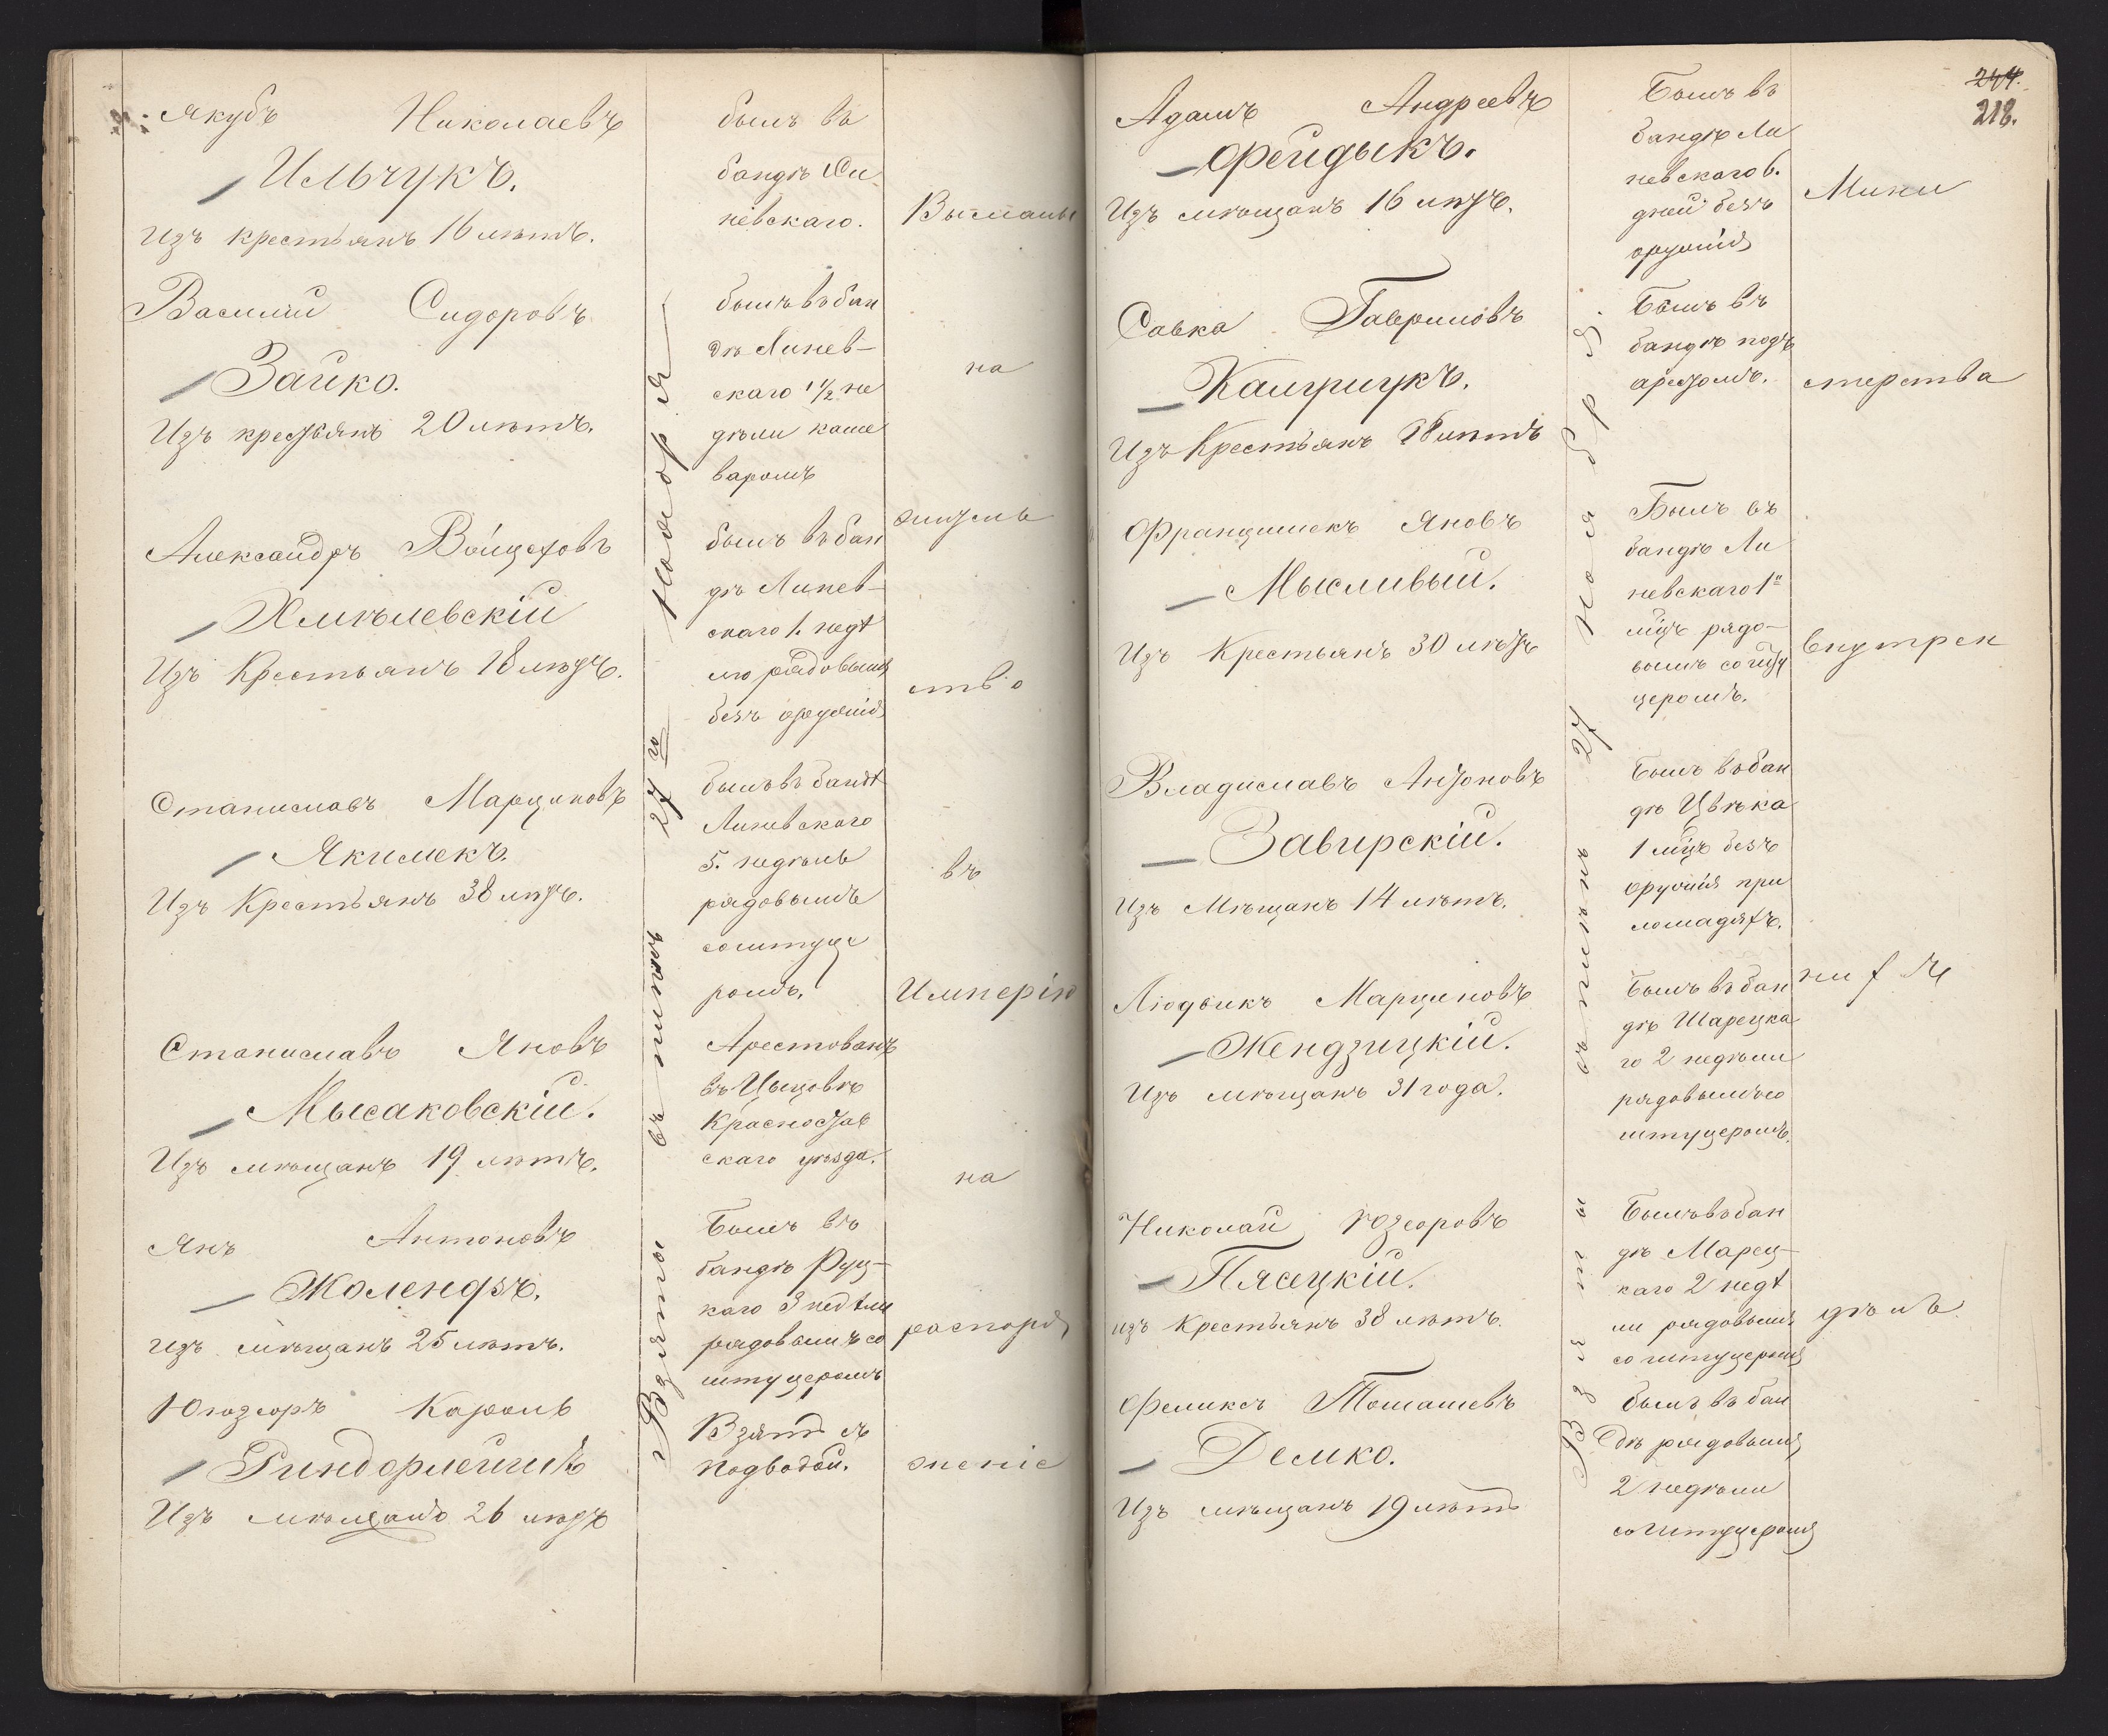 Якубъ Николаевъ
Ильчукъ.
Изъ крестьянъ 16 лѣтъ.
Василій Сидоровъ
Зайко.
Изъ крестьянъ 20 лѣтъ.
Александръ Войцеховъ
Хмѣлевскій
Изъ Крестьянъ 18 лѣтъ.
Станиславъ Марциновъ
Якимекъ.
Изъ Крестьянъ 38 лѣтъ.
Станиславъ Яновъ
Мысаковскій.
Изъ мѣщанъ 19 лѣтъ.
Янъ Антоновъ
Жолендзъ.
Изъ мѣщанъ 25 лѣтъ.
Юзефъ Кароль
Риндфлейшъ
Изъ мѣщанъ 26 лѣтъ
Взяты въ плѣнъ 27го Ноября
былъ въ
бандѣ Ли
невскаго.
былъ въ бан
дѣ Линев-
скаго 1½ не
дѣли каше
варомъ
былъ въ бан
дѣ Линев-
скаго 1. недѣ
лю рядовымъ
безъ оружія
былъ въ бандѣ
Линевскаго
5. недѣль
рядовымъ
со штуце
ромъ.
Арестованъ
въ Цыцовѣ
Красностав
скаго уѣзда.
Былъ въ
бандѣ Руц-
каго 3 недѣли
рядовымъ со
штуцеромъ
Взятъ съ
подводой.
Высланы
на
житель
ство
въ
Имперію
на
распоря
женіе
244.
218.
Адамъ Андреевъ
Фейдыкъ.
Изъ мѣщанъ 16 лѣтъ.
Савка Гавриловъ
Калтуцкъ.
Изъ Крестьянъ 18 лѣтъ
Францишекъ Яновъ
Мысливый.
Изъ Крестьянъ 30 лѣтъ
Владиславъ Антоновъ
Завирскій.
Изъ Мѣщанъ 14 лѣтъ.
Людвикъ Марциновъ
Жендзицкій.
Изъ мѣщанъ 31 года.
Николай Юзефовъ
Пясецкій.
изъ Крестьянъ 38 лѣтъ.
Феликсъ Томашевъ
Демко.
Изъ мѣщанъ 19 лѣтъ
Взяты въ плѣнъ 27 Ноября.
Былъ въ
бандѣ Ли
невскаго 6.
дней безъ
оружія
Былъ въ
бандѣ подъ
арестомъ.
Былъ въ
бандѣ Ли
невскаго 1н
мѣцъ рядо-
вымъ со шту
церомъ.
Былъ въ бан
дѣ Цвѣка
1 мѣцъ безъ
оружія при
лошадяхъ.
Былъ въ бан
дѣ Шарецка
го 2 недѣли
рядовымъ со
штуцеромъ.
Былъ въ бан
дѣ Марец-
каго 2 недѣ
ли рядовымъ
со штуцеромъ
былъ въ бан
дѣ рядовымъ
2 недѣли
со штуцеромъ
Мини
стерства
внутрен
нихъ
дѣлъ